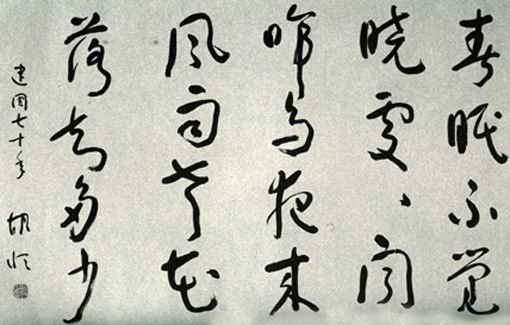 春眠不觉
晓处处闻
啼鸟夜来
风雨声花
落知多少
建国七十年 胡